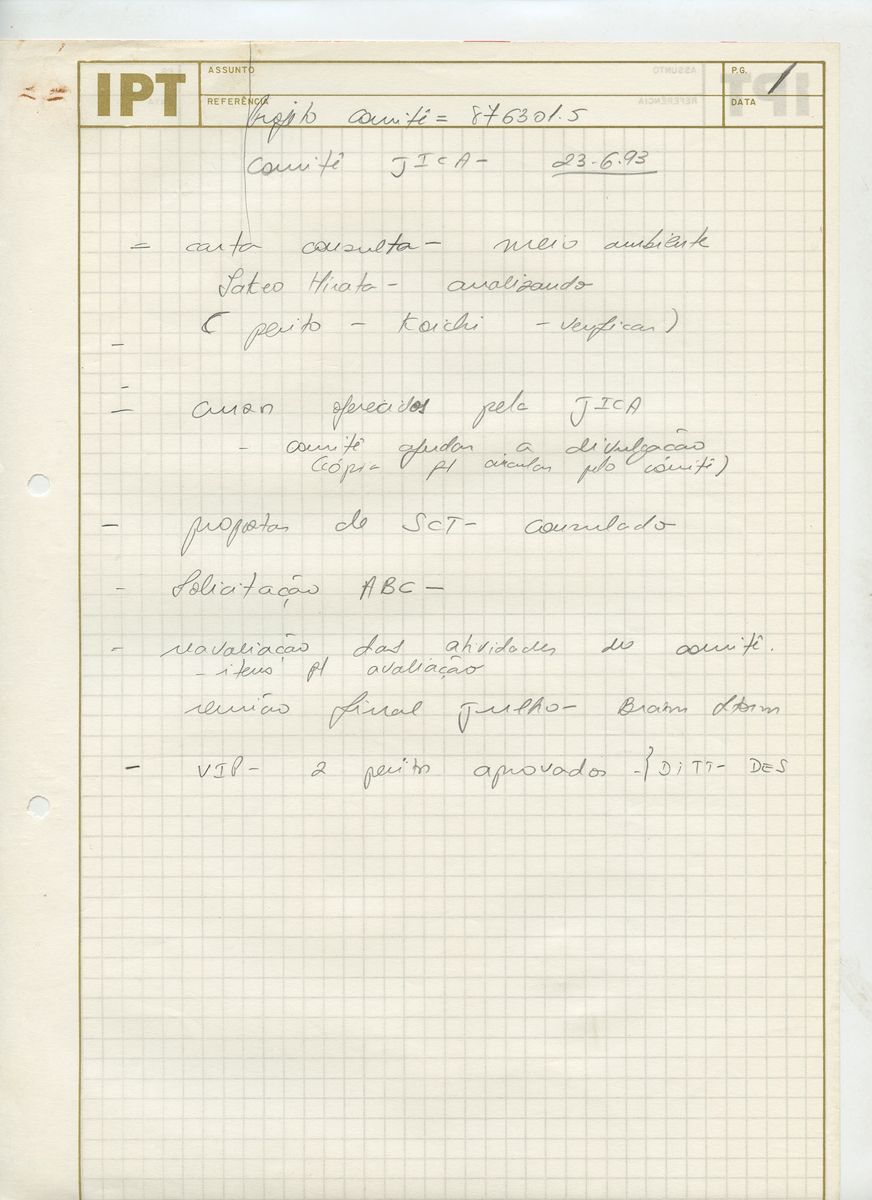 IPT
ASSUNTO
P.G. 1
REFERÊNCIA
DATA
Projeto Comitê = 876301.5
Comitê JICA - 23-6.93
= carta consulta - meio ambiente
Sakeo Hirata - analizando
( perito - Koichi - verificar)
-
-
- cursos oferecidos pela JICA
- comitê ajudar a divulgação
(cópia p/ circular pelo comitê)
- propostas do SCT - consulado
- Solicitação ABC -
- reavaliação das atividades do comitê.
- itens p/ avaliação
reunião final Julho - Brain Storm
- VIP - 2 peritos aprovados -} DITT - DES